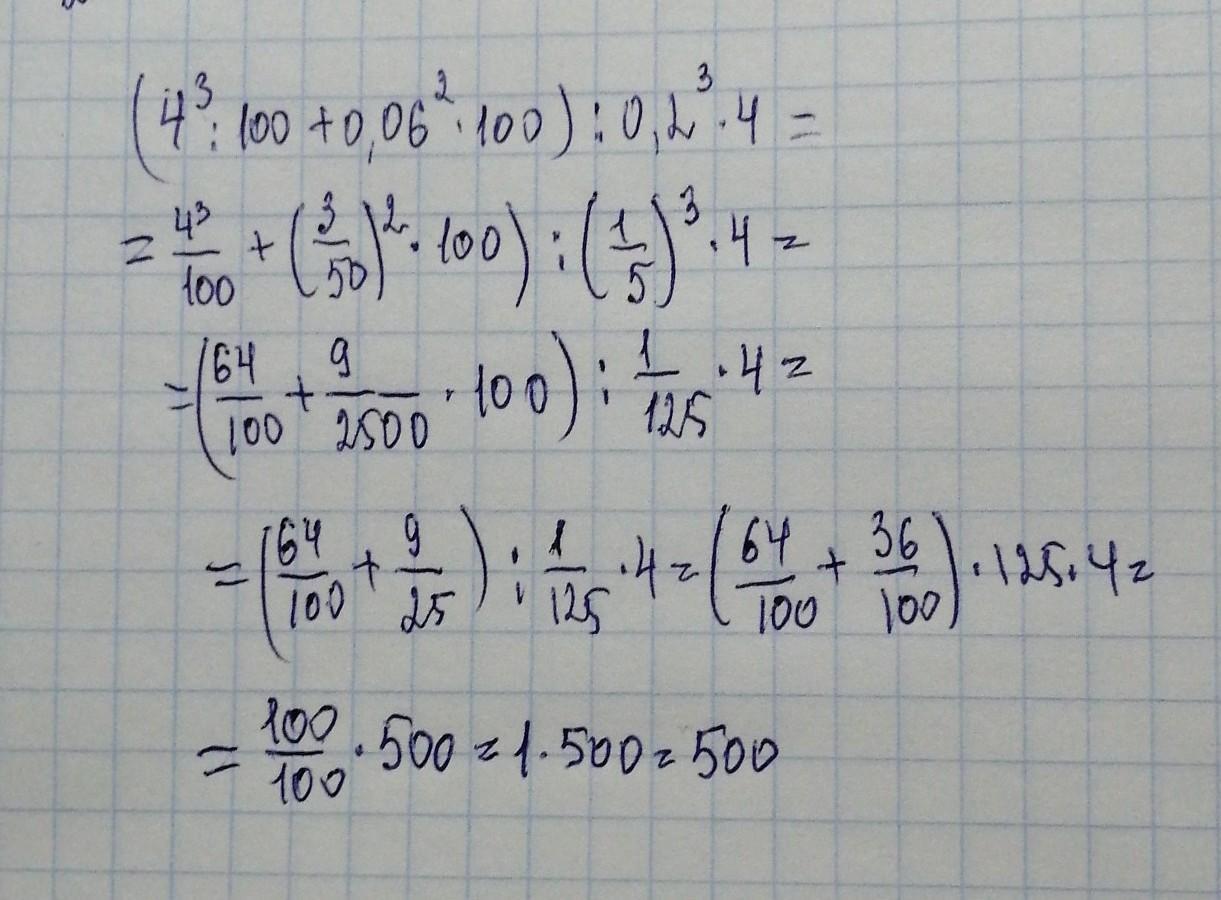 (4³ : 100 + 0,06² · 100) : 0,2³ · 4 =
= 4³/100 + (3/50)² · 100) : (1/5)³ · 4 =
= (64/100 + 9/2500 · 100) : 1/125 · 4 =
= (64/100 + 9/25) : 1/125 · 4 = (64/100 + 36/100) · 125 · 4 =
= 100/100 · 500 = 1 · 500 = 500